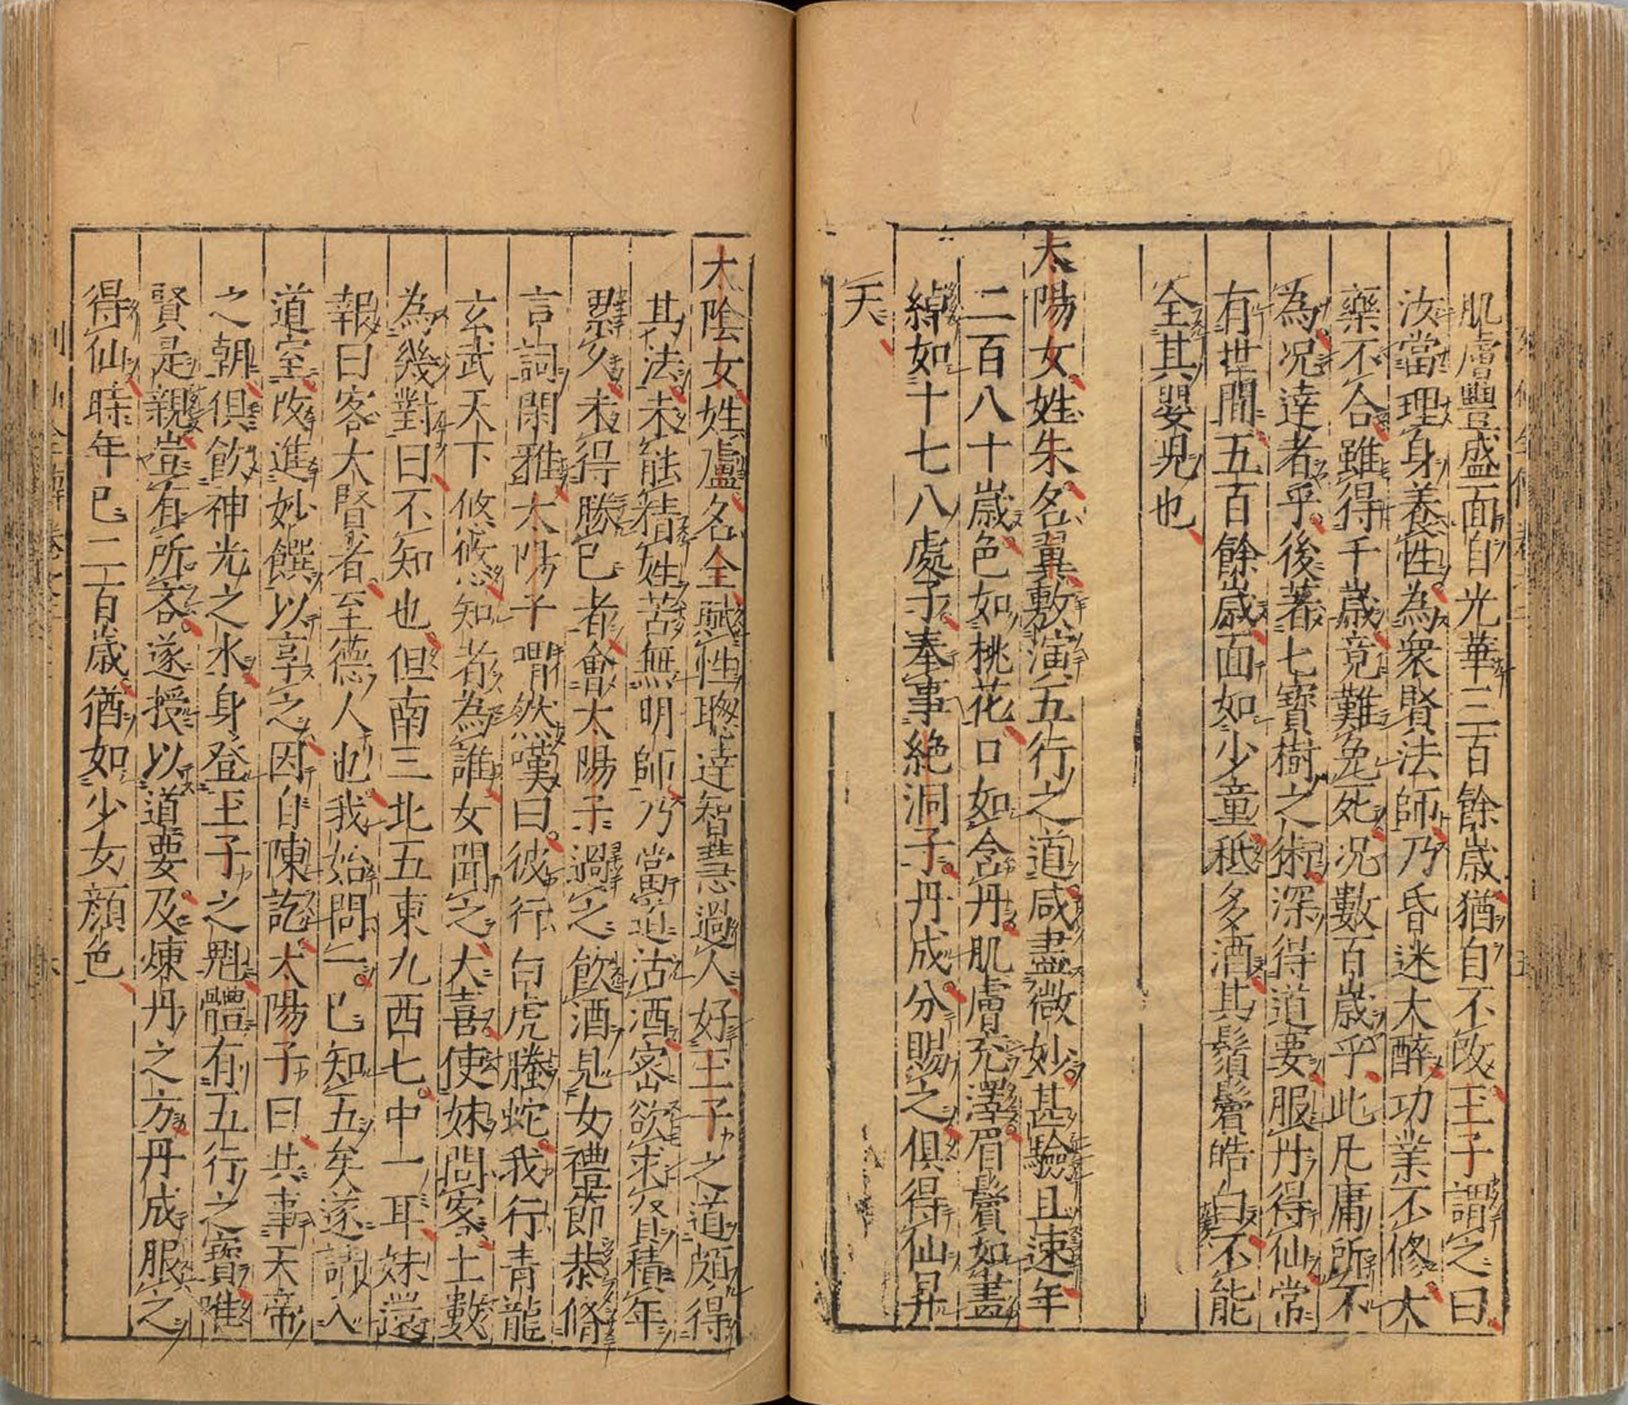 肌膚豐盛面目光華三百餘歲猶自不改玉子謂之曰
汝當理身養性為衆賢法師乃昏迷大醉功業不修大
藥不合雖得千歲竟難免死况數百歲乎此凡庸所不
為况達者乎後著七寶樹之術深得道要服丹得仙常
有世間五百餘歲面如少童秪多酒其鬚鬢皓白不能
全其嬰児也
太陽女姓朱名翼敷演五行之道咸盡微妙甚驗且速年
二百八十歲色如桃花口如含丹肌膚充澤眉鬢如畫
綽如十七八處子奉事絶洞子丹成分賜之俱得仙昇
天
太陰女姓盧名全賦性聰達智慧過人好玉子之道頗得
其法未能精妙苦無明師乃當道沽酒密欲求賢積年
累久未得勝已者會太陽子過之飲酒見女禮節恭脩
言詞閑雅太陽子喟然嘆曰彼行白虎螣蛇我行青龍
玄武天下悠悠知者為誰女聞之大喜使妹問客土數
為幾對曰不知也但南三北五東九西七中一耳妹還
報曰客大賢者至德人也我始問一已知五矣遂請入
道室改進妙饌以享之因自陳訖太陽子曰共事天帝
之朝俱飲神光之水身登玉子之魁體有五行之寳唯
賢是親豈有所吝遂授以道要及煉丹之方丹成服之
得仙時年已二百歲猶如少女顔色